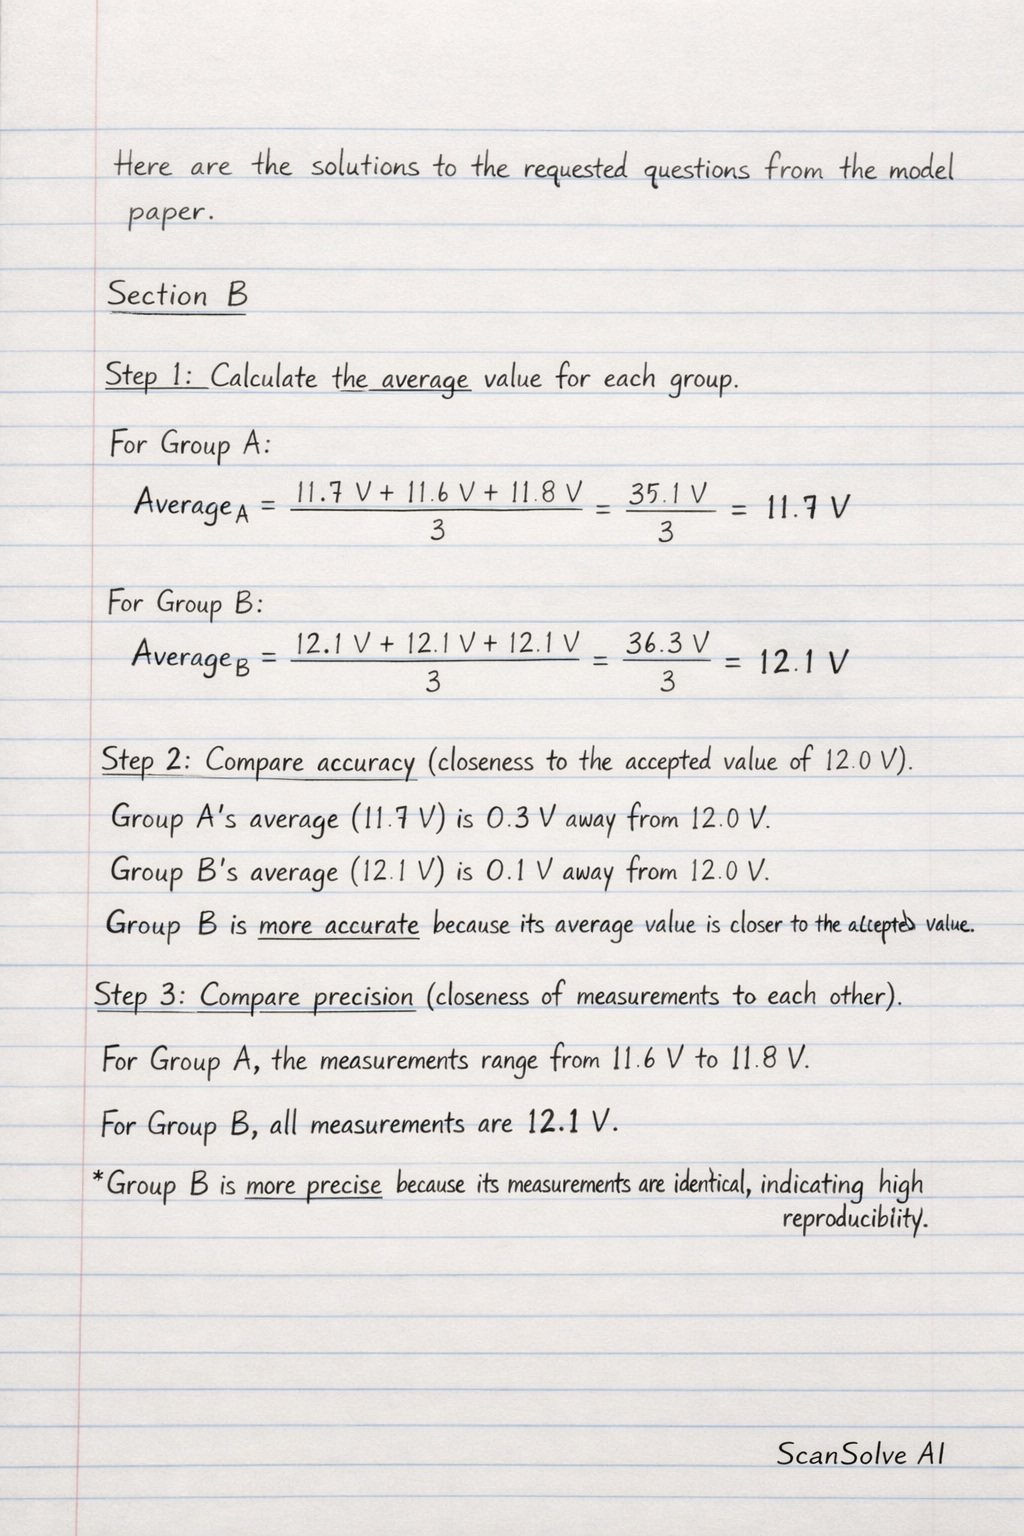 Here are the solutions to the requested questions from the model
paper.
Section B
Step 1: Calculate the average value for each group.
For Group A:
Average_A = (11.7 V + 11.6 V + 11.8 V) / 3 = 35.1 V / 3 = 11.7 V
For Group B:
Average_B = (12.1 V + 12.1 V + 12.1 V) / 3 = 36.3 V / 3 = 12.1 V
Step 2: Compare accuracy (closeness to the accepted value of 12.0 V).
Group A's average (11.7 V) is 0.3 V away from 12.0 V.
Group B's average (12.1 V) is 0.1 V away from 12.0 V.
Group B is more accurate because its average value is closer to the accepted value.
Step 3: Compare precision (closeness of measurements to each other).
For Group A, the measurements range from 11.6 V to 11.8 V.
For Group B, all measurements are 12.1 V.
*Group B is more precise because its measurements are identical, indicating high
reproducibiity.
ScanSolve AI